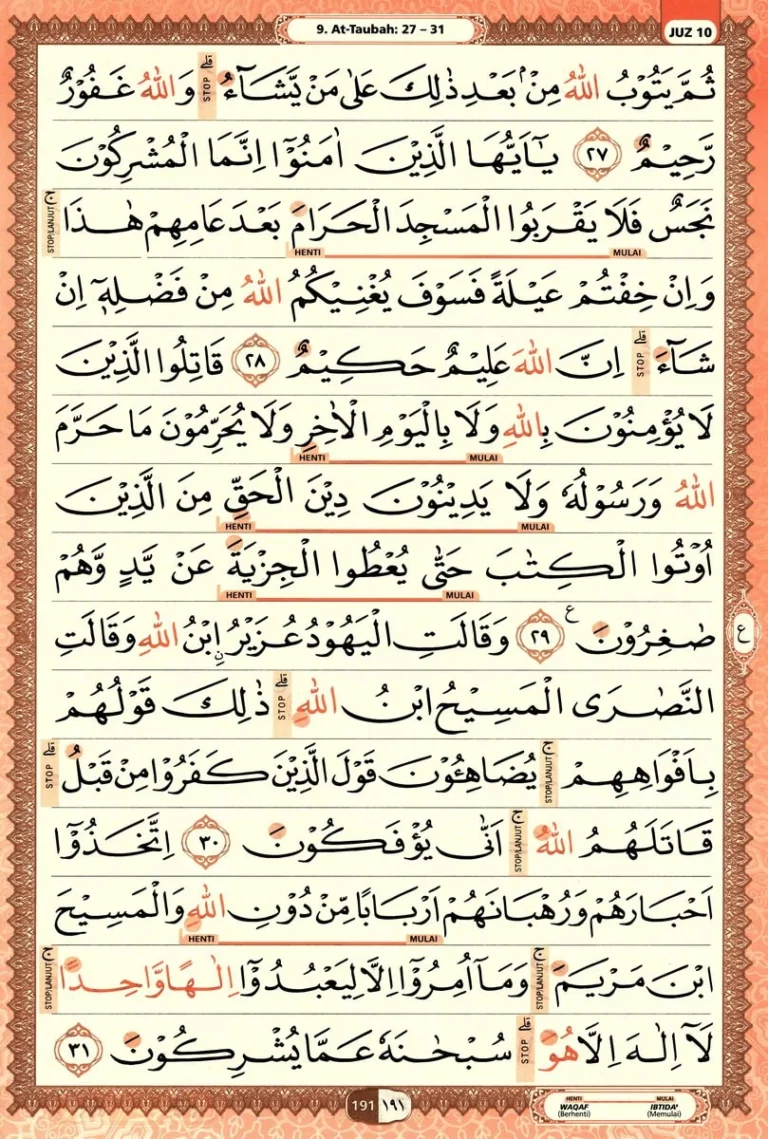 9. At-Taubah: 27 – 31
JUZ 10
ثُمَّ يَتُوْبُ اللّٰهُ مِنْۢ بَعْدِ ذٰلِكَ عَلٰى مَنْ يَّشَاۤءُ ۗ STOP وَاللّٰهُ غَفُوْرٌ
رَّحِيْمٌ ٢٧ يٰٓاَيُّهَا الَّذِيْنَ اٰمَنُوْٓا اِنَّمَا الْمُشْرِكُوْنَ
نَجَسٌ فَلَا يَقْرَبُوا الْمَسْجِدَ الْحَرَامَ بَعْدَ عَامِهِمْ هٰذَا ۚ STOP/LANJUT
MULAI HENTI
وَاِنْ خِفْتُمْ عَيْلَةً فَسَوْفَ يُغْنِيْكُمُ اللّٰهُ مِنْ فَضْلِهٖٓ اِنْ
شَاۤءَ ۗ STOP اِنَّ اللّٰهَ عَلِيْمٌ حَكِيْمٌ ٢٨ قَاتِلُوا الَّذِيْنَ
لَا يُؤْمِنُوْنَ بِاللّٰهِ وَلَا بِالْيَوْمِ الْاٰخِرِ وَلَا يُحَرِّمُوْنَ مَا حَرَّمَ
MULAI HENTI
اللّٰهُ وَرَسُوْلُهٗ وَلَا يَدِيْنُوْنَ دِيْنَ الْحَقِّ مِنَ الَّذِيْنَ
MULAI HENTI
اُوْتُوا الْكِتٰبَ حَتّٰى يُعْطُوا الْجِزْيَةَ عَنْ يَّدٍ وَّهُمْ
MULAI HENTI
صٰغِرُوْنَ ٢٩ ع وَقَالَتِ الْيَهُوْدُ عُزَيْرُ ۨابْنُ اللّٰهِ وَقَالَتِ
ع
النَّصٰرَى الْمَسِيْحُ ابْنُ اللّٰهِ ۗ STOP ذٰلِكَ قَوْلُهُمْ
بِاَفْوَاهِهِمْ ۚ STOP/LANJUT يُضَاهِـُٔوْنَ قَوْلَ الَّذِيْنَ كَفَرُوْا مِنْ قَبْلُ ۗ STOP
قَاتَلَهُمُ اللّٰهُ ۚ STOP/LANJUT اَنّٰى يُؤْفَكُوْنَ ٣٠ اِتَّخَذُوْٓا
اَحْبَارَهُمْ وَرُهْبَانَهُمْ اَرْبَابًا مِّنْ دُوْنِ اللّٰهِ وَالْمَسِيْحَ
MULAI HENTI
ابْنَ مَرْيَمَ ۚ STOP/LANJUT وَمَآ اُمِرُوْٓا اِلَّا لِيَعْبُدُوْٓا اِلٰهًا وَّاحِدًا ۚ STOP/LANJUT
لَآ اِلٰهَ اِلَّا هُوَ ۗ STOP سُبْحٰنَهٗ عَمَّا يُشْرِكُوْنَ ٣١
191 ١٩١
HENTI MULAI
WAQAF IBTIDA'
(Berhenti) (Memulai)